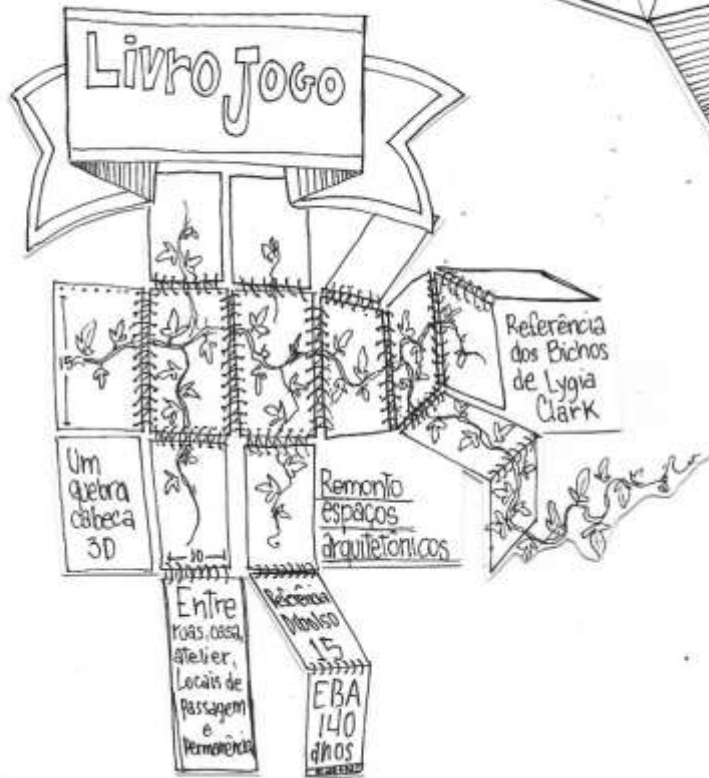 Livro Jogo
15
Referência
dos Bichos
de Lygia
Clark
Um
quebra
cabeca
3D
10
Remonto
espaços
arquitetônicos
Entre
ruas, casa,
atelier,
Locais de
Passagem
e
Permanência
Referência
Dobolso
15
EBA
140
anos